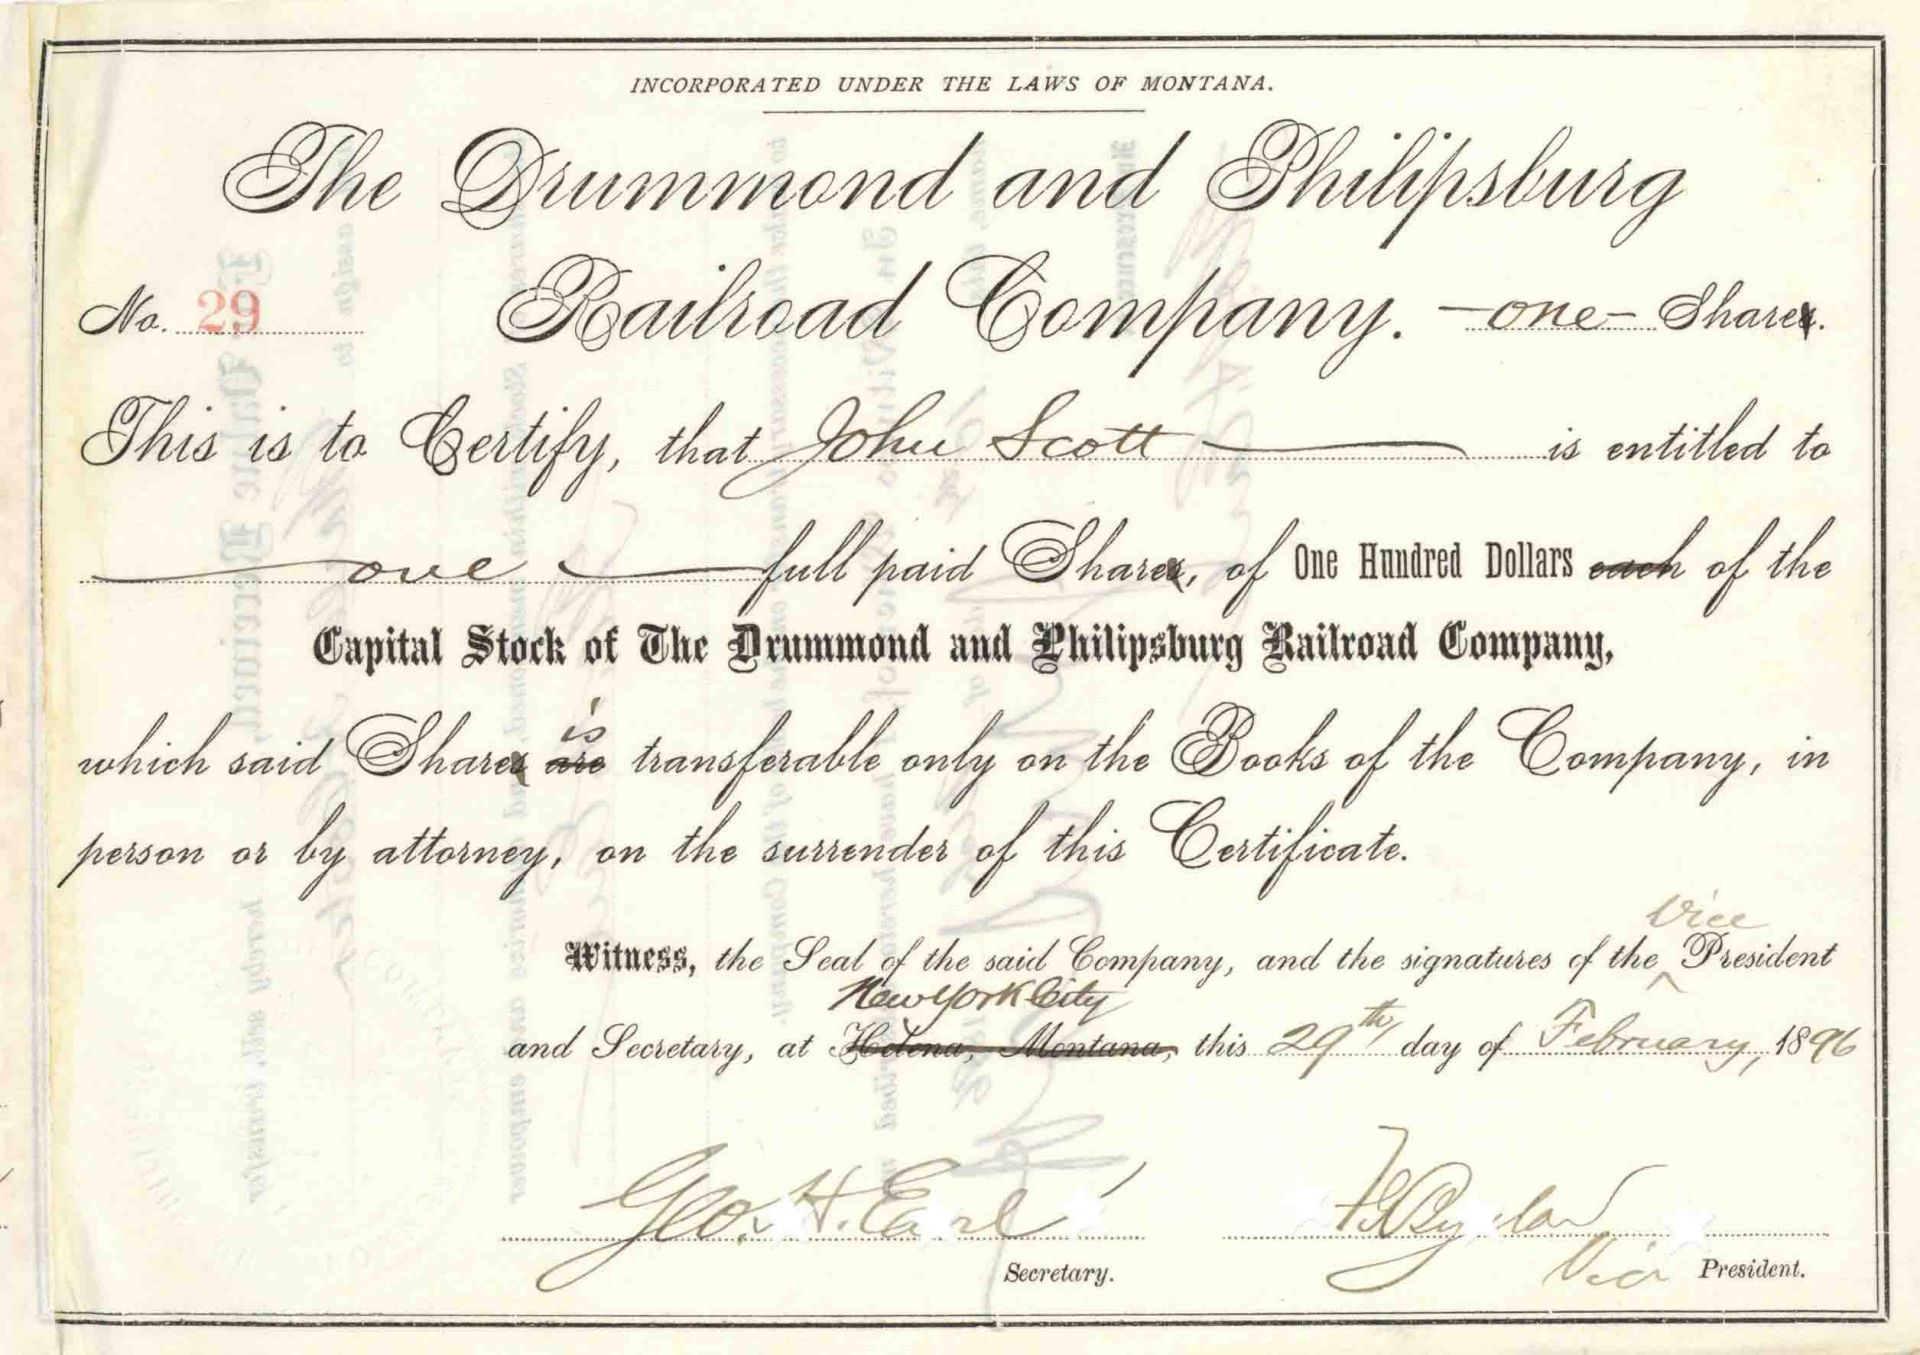 INCORPORATED UNDER THE LAWS OF MONTANA.
The Drummond and Philipsburg
No. 29 Railroad Company. —one— Shares.
This is to Certify, that John Scott is entitled to
one full paid Shares, of One Hundred Dollars each of the
Capital Stock of The Drummond and Philipsburg Railroad Company,
is
which said Shares are transferable only on the Books of the Company, in
person or by attorney, on the surrender of this Certificate.
Vice
Witness, the Seal of the said Company, and the signatures of the President
New York City
and Secretary, at Helena, Montana, this 29th day of February, 1896
Geo. H. Earl
Secretary.
Vice President.